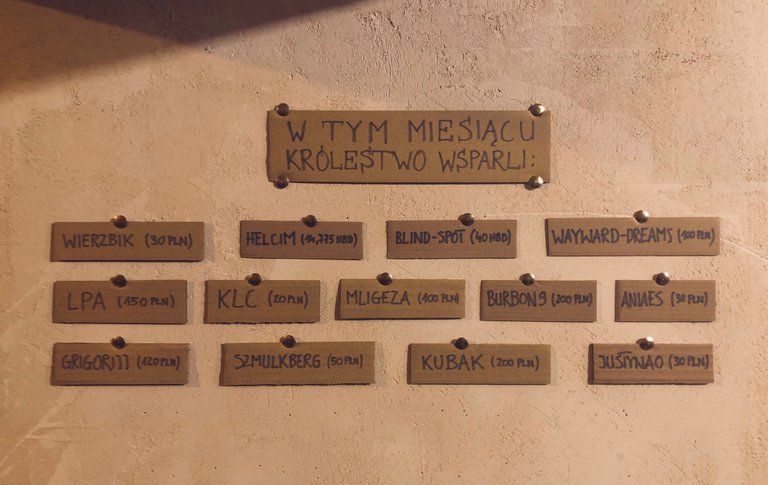 W TYM MIESIĄCU
KRÓLESTWO WSPARLI:
WIERZBIK (30 PLN)
HELCIM (14,775 HBD)
BLIND-SPOT (40 HBD)
WAYWARD-DREAMS (100 PLN)
LPA (150 PLN)
KLC (20 PLN)
MLIGEZA (100 PLN)
BURBON9 (200 PLN)
ANIAES (30 PLN)
GRIGORIJJ (120 PLN)
SZMULKBERG (50 PLN)
KUBAK (200 PLN)
JUSTYNAO (30 PLN)